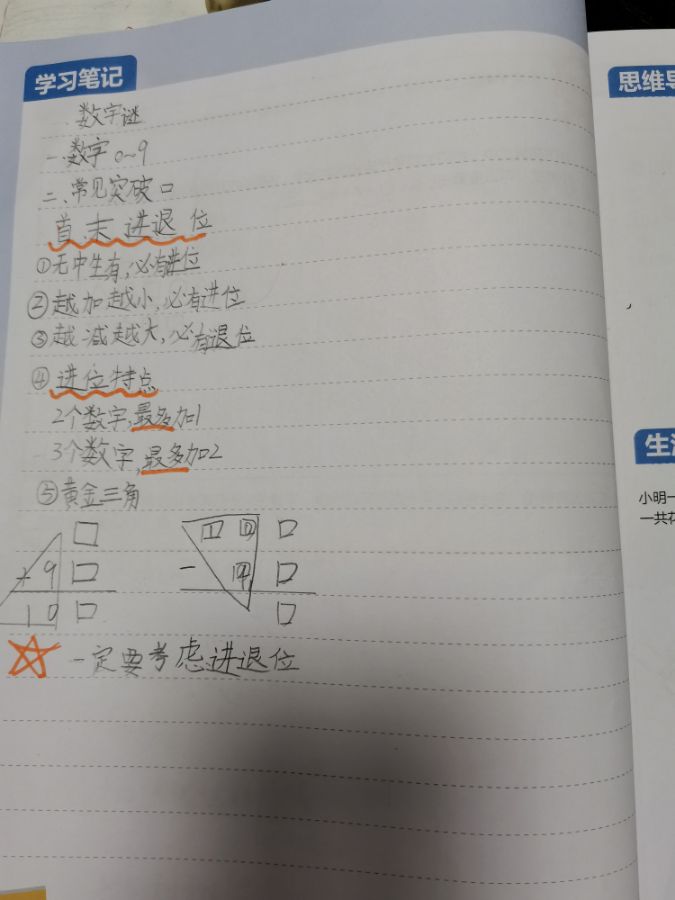 学习笔记
数字谜
一、数字 0~9
二、常见突破口
首、末 进退位
①无中生有,必有进位
②越加越小,必有进位
③越减越大,必有退位
④进位特点
2个数字,最多加1
3个数字,最多加2
⑤黄金三角
□
+ 9 □
1 0 □
1 0 □
- 9 □
□
一定要考虑进退位
思维导
生
小明一
一共花